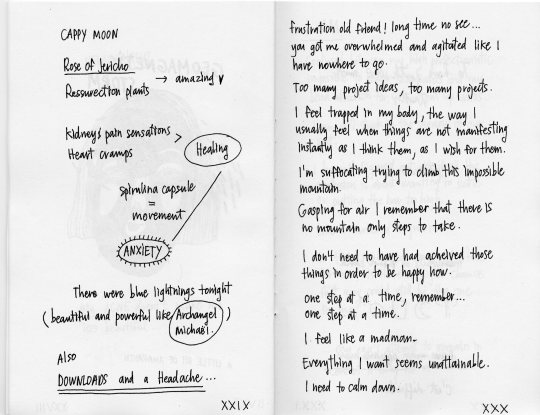 CAPPY MOON
Rose of Jericho
Ressurection plants
→ amazing
Kidney's pain sensations
Heart cramps
>
Healing
spirulina capsule
=
movement
ANXIETY
There were blue lightnings tonight
(beautiful and powerful like Archangel
Michael.)
Also
DOWNLOADS and a Headache...
XXIX
frustration old friend! long time no see...
you got me overwhelmed and agitated like I
have nowhere to go.
Too many project ideas, too many projects.
I feel trapped in my body, the way I
usually feel when things are not manifesting
instantly as I think them, as I wish for them.
I'm suffocating trying to climb this impossible
mountain.
Gasping for air I remember that there is
no mountain only steps to take.
I don't need to have had acheived those
things in order to be happy now.
one step at a time, remember...
one step at a time.
I feel like a madman.
Everything I want seems unattainable.
I need to calm down.
XXX